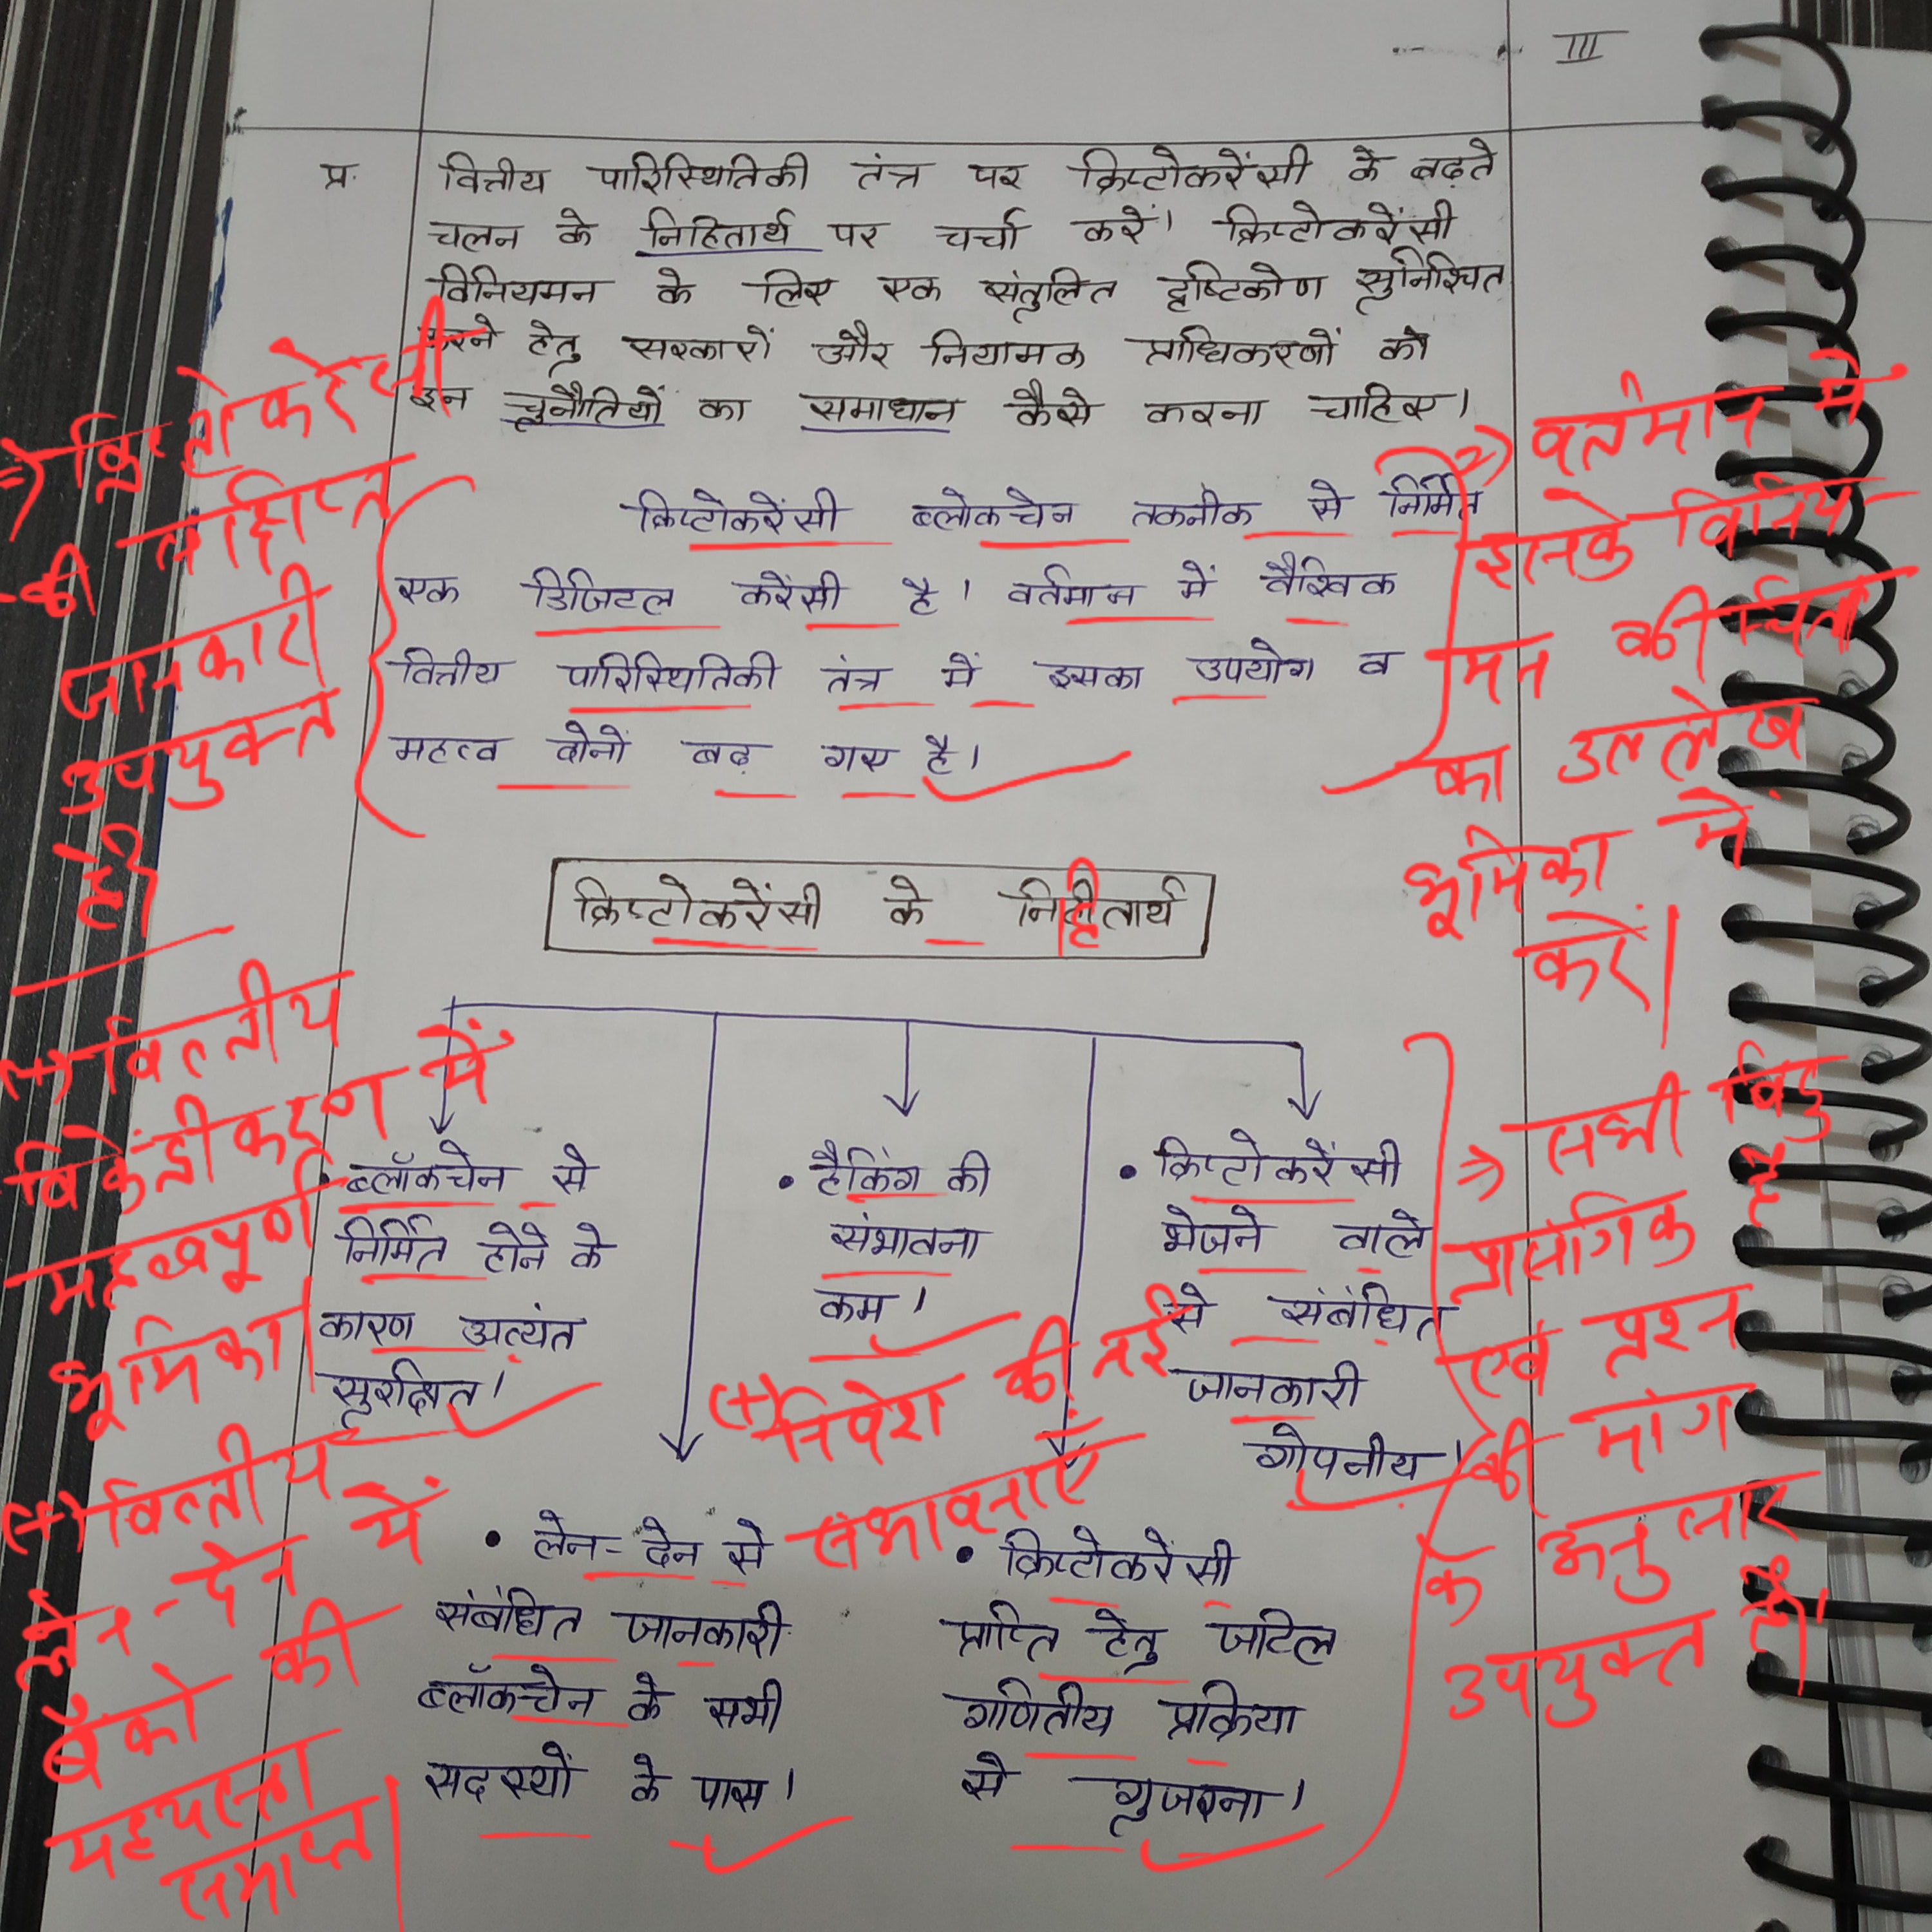 III
प्र. वित्तीय पारिस्थितिकी तंत्र पर क्रिप्टोकरेंसी के बढ़ते
चलन के निहितार्थ पर चर्चा करें। क्रिप्टोकरेंसी
विनियमन के लिए एक संतुलित दृष्टिकोण सुनिश्चित
करने हेतु सरकारों और नियामक प्राधिकरणों को
इन चुनौतियों का समाधान कैसे करना चाहिए।
क्रिप्टोकरेंसी ब्लोकचेन तकनीक से निर्मित
एक डिजिटल करेंसी है। वर्तमान में वैश्विक
वित्तीय पारिस्थितिकी तंत्र में इसका उपयोग व
महत्व दोनों बढ़ गए है।
=) क्रिप्टोकरेंसी
की संक्षिप्त
जानकारी
उपयुक्त
है।
=) वर्तमान में
इनके विनिय
मन की चिंता
का उल्लेख
भूमिका में
करें।
क्रिप्टोकरेंसी के निहीतार्थ
• ब्लॉकचेन से
निर्मित होने के
कारण अत्यंत
सुरक्षित।
• हैकिंग की
संभावना
कम।
• क्रिप्टोकरेंसी
भेजने वाले
से संबंधित
जानकारी
गोपनीय।
• लेन-देन से
संबंधित जानकारी
ब्लॉकचेन के सभी
सदस्यों के पास।
• क्रिप्टोकरेंसी
प्राप्ति हेतु जटिल
गणितीय प्रक्रिया
से गुजरना।
(+) वित्तीय
विकेंद्रीकरण में
महत्वपूर्ण
भूमिका।
(+) वित्तीय
लेन-देन में
बैंको की
मध्यस्थता
समाप्त।
(+) निवेश की नई
संभावनाएँ
=> सभी बिंदु
प्रासंगिक है
एवं प्रश्न
की मांग
के अनुसार
उपयुक्त है।